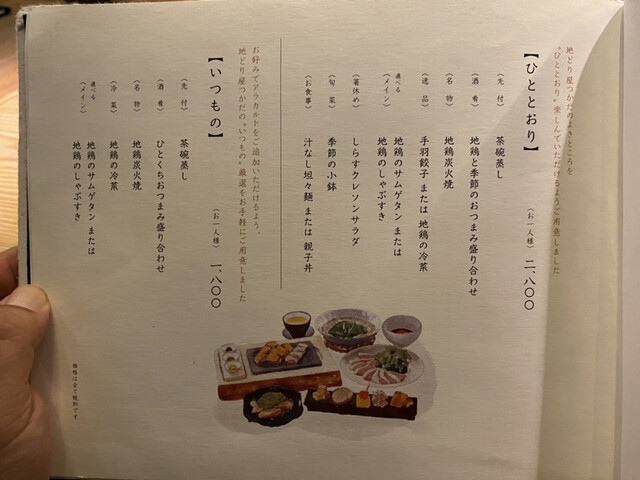 地どり屋つかだのよきところを
“ひととおり”楽しんでいただけるようご用意しました
【ひととおり】
（お一人様） 二、八〇〇
（先 付） 茶碗蒸し
（酒 肴） 地鶏と季節のおつまみ盛り合わせ
（名 物） 地鶏炭火焼
（逸 品） 手羽餃子 または 地鶏の冷菜
選べる
（メイン）
地鶏のサムゲタン または
地鶏のしゃぶすき
（箸休め） しらすクレソンサラダ
（旬 菜） 季節の小鉢
（お食事） 汁なし坦々麺 または 親子丼
お好みでアラカルトをご追加いただけるよう、
地どり屋つかだの“いつもの”厳選をお手軽にご用意しました
【いつもの】
（お一人様） 一、八〇〇
（先 付） 茶碗蒸し
（酒 肴） ひとくちおつまみ盛り合わせ
（名 物） 地鶏炭火焼
（冷 菜） 地鶏の冷菜
選べる
（メイン）
地鶏のサムゲタン または
地鶏のしゃぶすき
価格は全て税別です